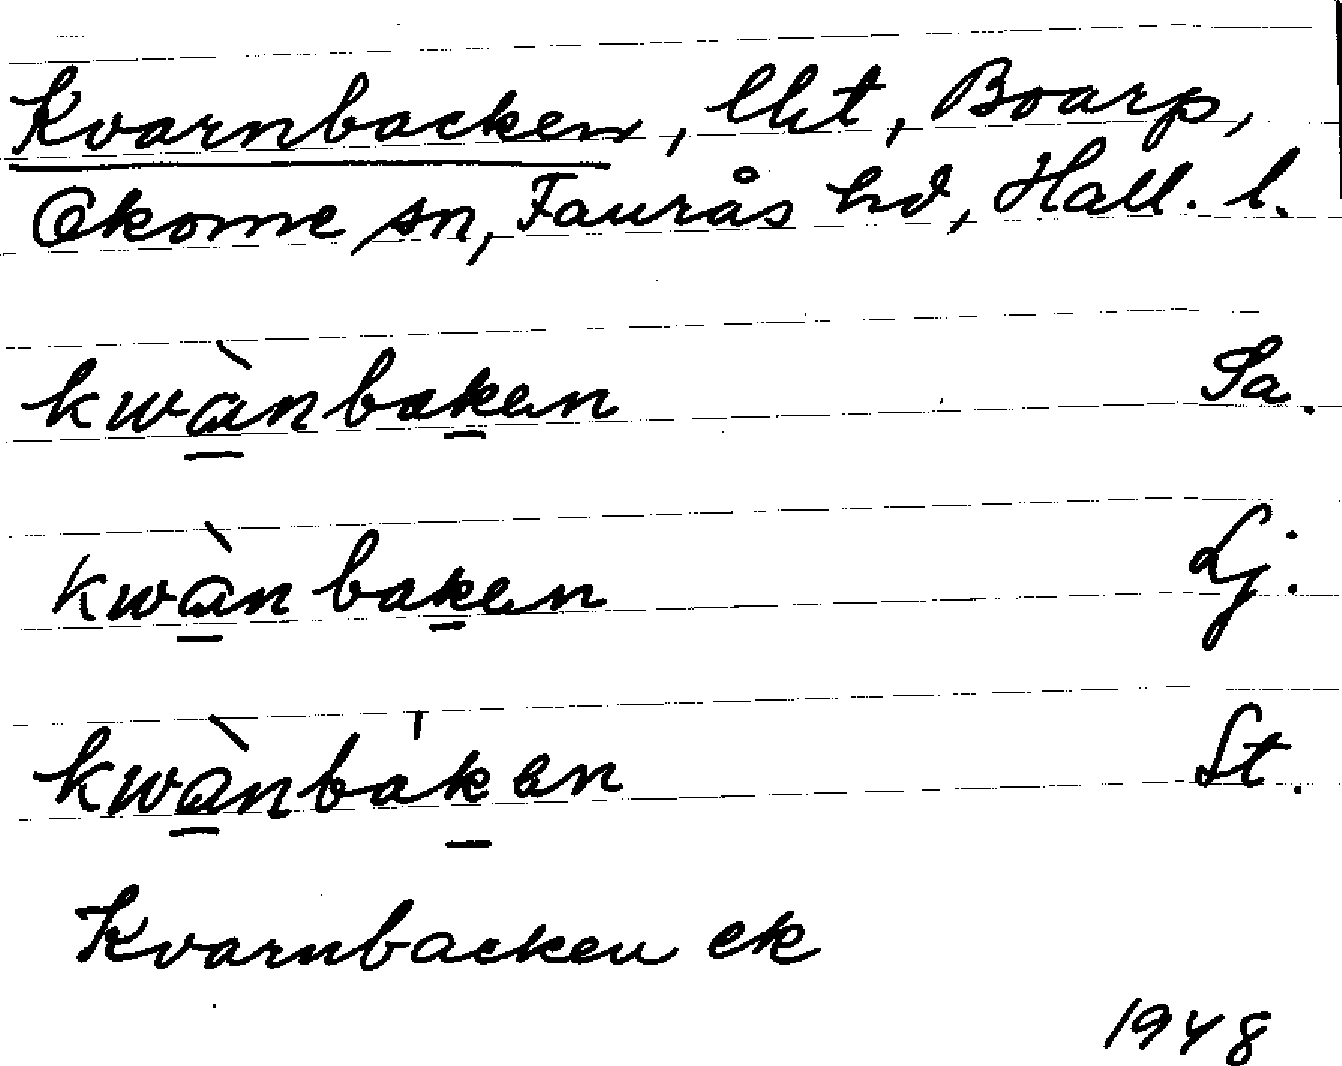 Kvarnbacken, lht, Boarp,
Okome sn, Faurås hd, Hall. l.
kwànbaken Sa.
kwànbaken Lj.
kwànba'ken St.
Kvarnbacken ek
1948